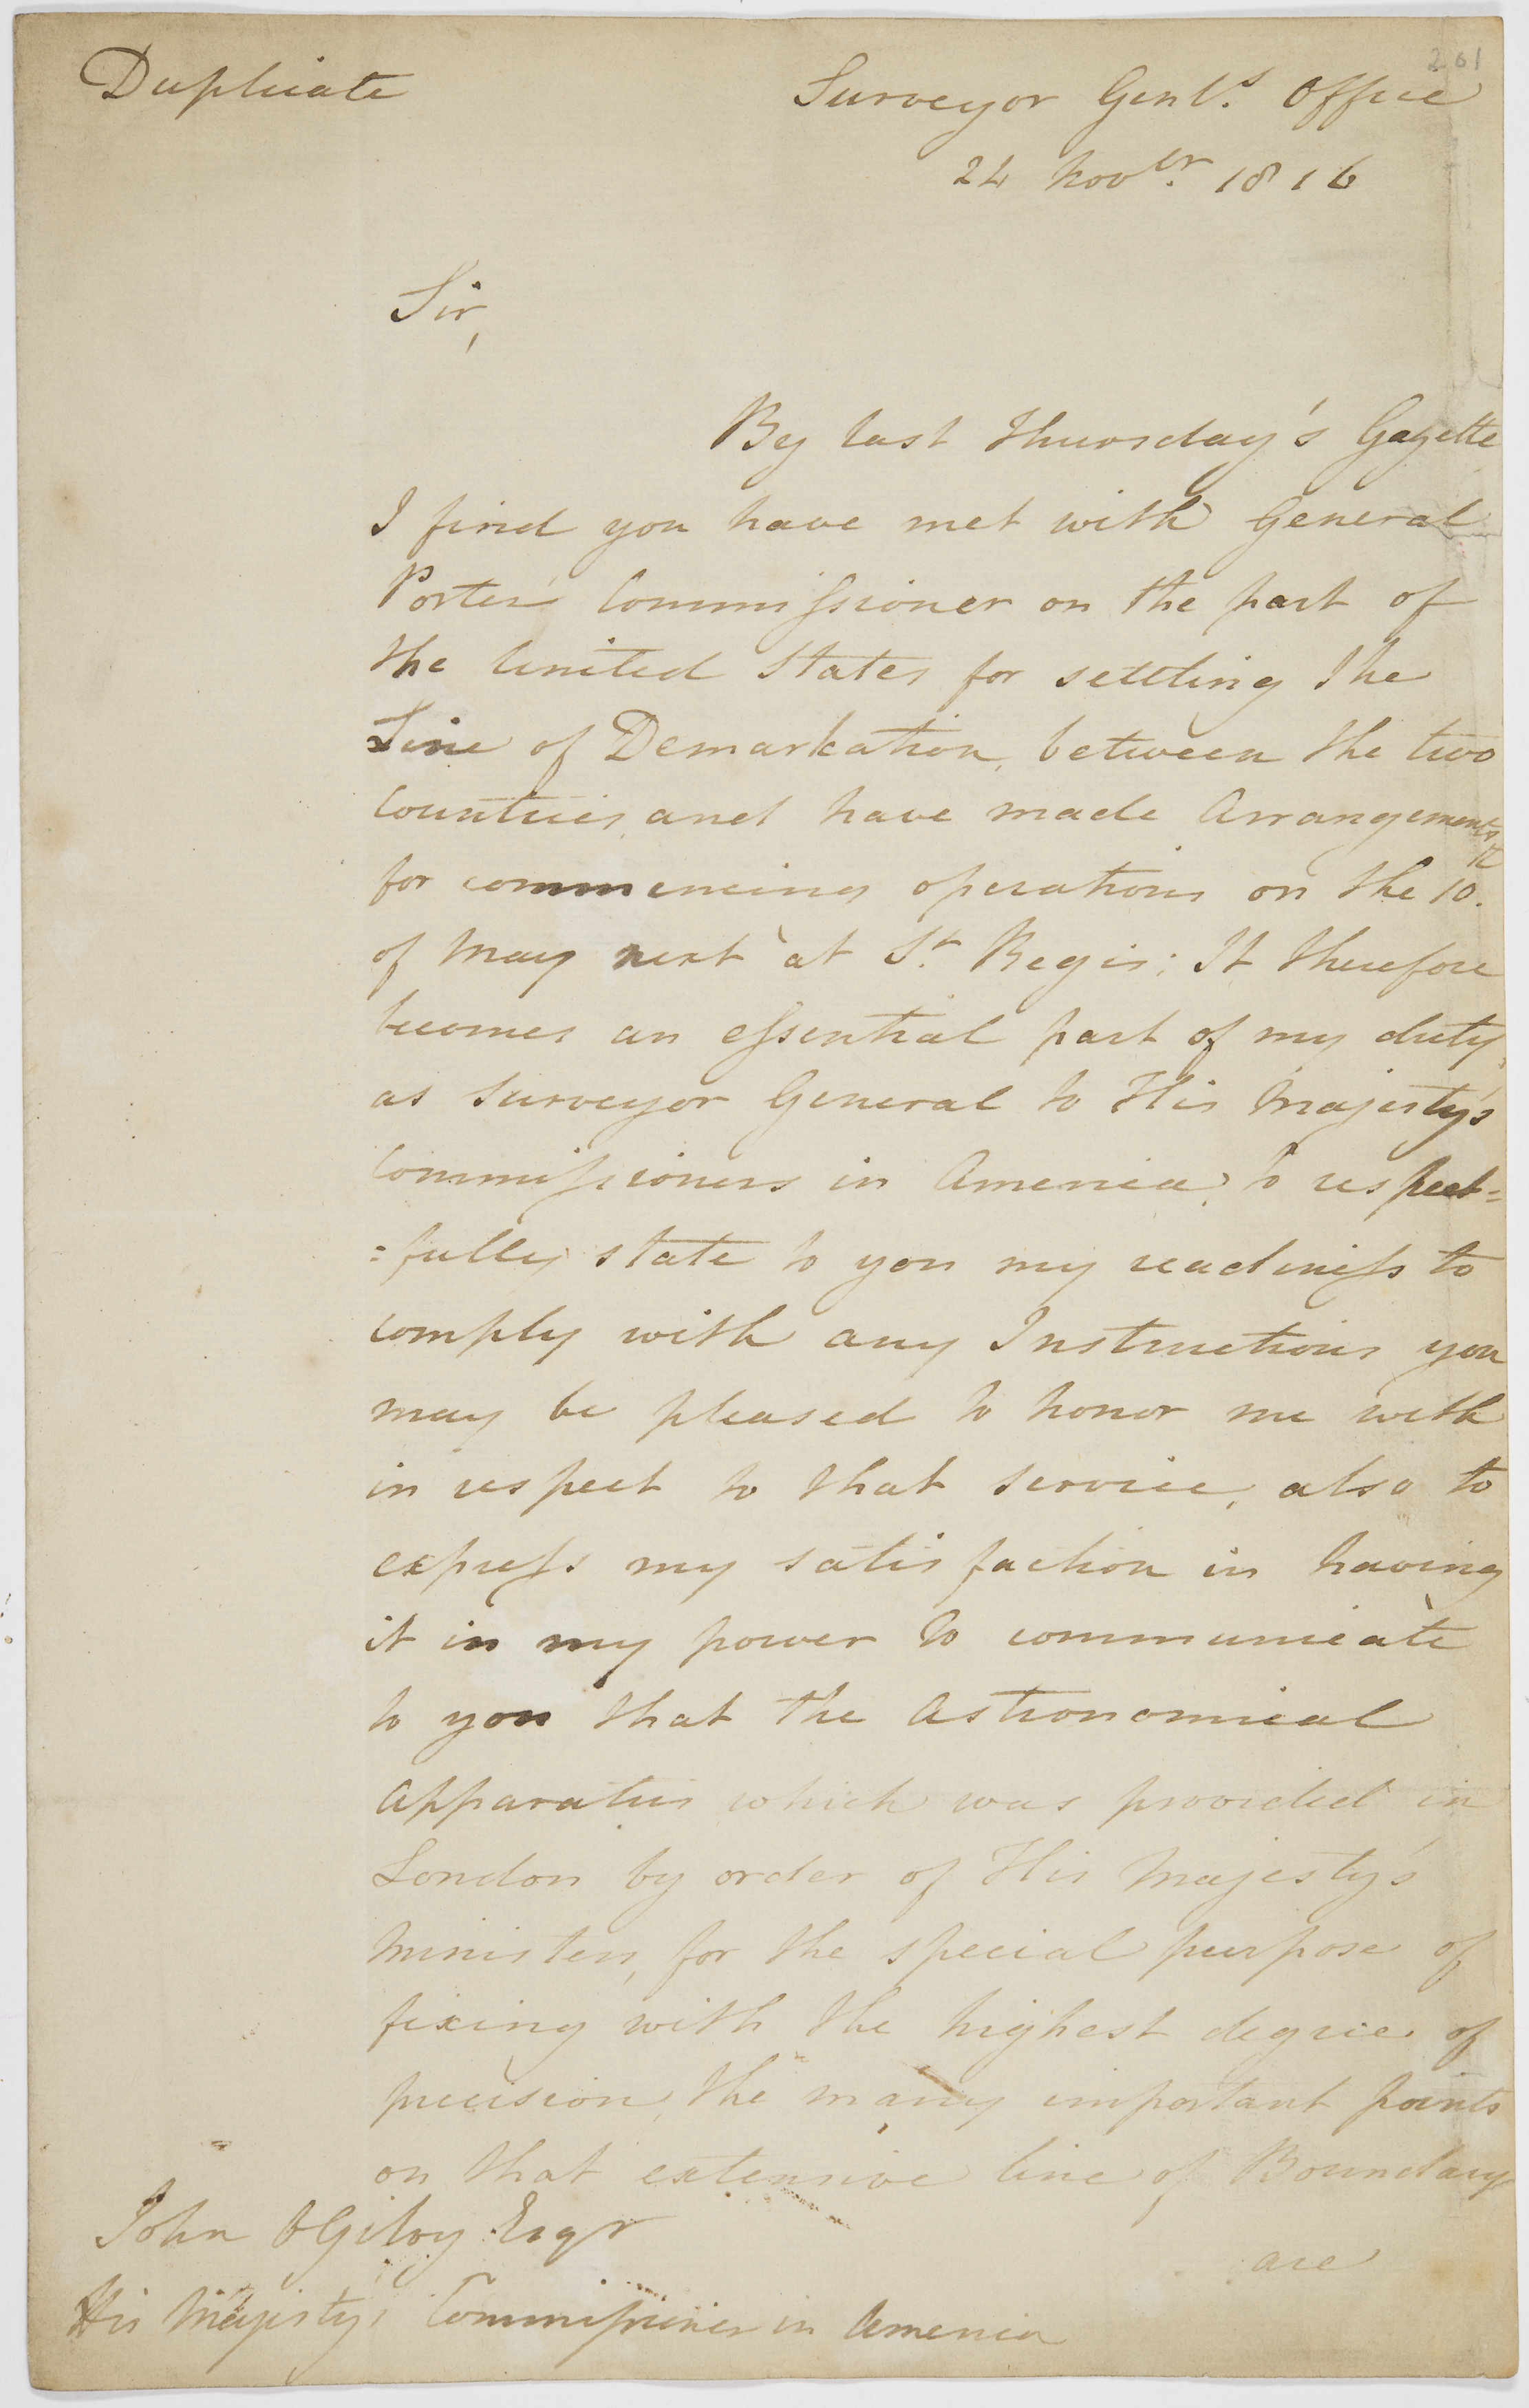 201
Duplicate
Surveyor Genl's. Office
24 Novbr. 1816
Sir,
By last Thursday's Gazette
I find you have met with General
Porter Commissioner on the part of
the United States for settling the
Line of Demarkation, between the two
Countries, and have made Arrangements
for commencing operations on the 10th.
of May next at St. Regis; It therefore
becomes an essential part of my duty,
as Surveyor General to His Majesty's
Commissioners in America, to respect=
=fully state to you my readiness to
comply with any Instructions you
may be pleased to honor me with
in respect to that service, also to
express my satisfaction in having
it in my power to communicate
to you that the Astronomical
Apparatus which was provided in
London by order of His Majesty's
Ministers, for the special purpose of
fixing with the highest degree of
precision, the many important points
on that extensive line of Boundary
are
John OGilvy Esqr
His Majesty's Commissioner in America